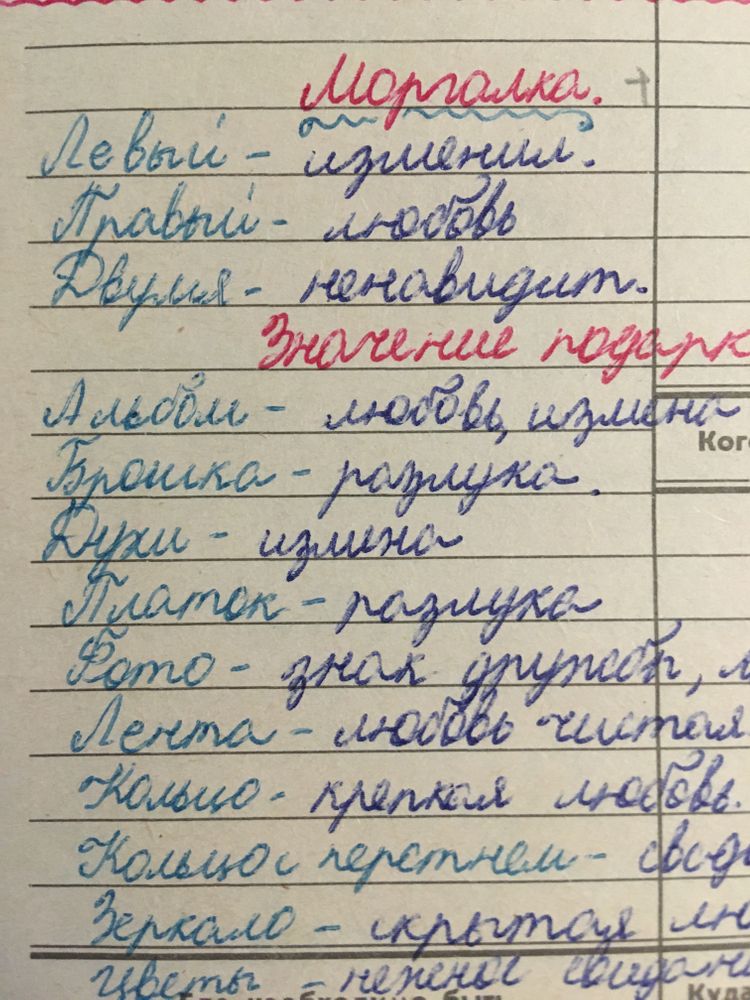 Моргалка. +
Левый - изменил.
Правый - любовь
Двумя - ненавидит.
Значение подарк
Альбом - любовь, измена
Ког
Брошка - разлука.
Духи - измена
Платок - разлука
Фото - знак дружбы, л
Лента - любовь чистая
Кольцо - крепкая любовь.
Кольцо с перстнем - свад
Зеркало - скрытая лю
Цветы - нежное свидани
необходимо быть
Куда